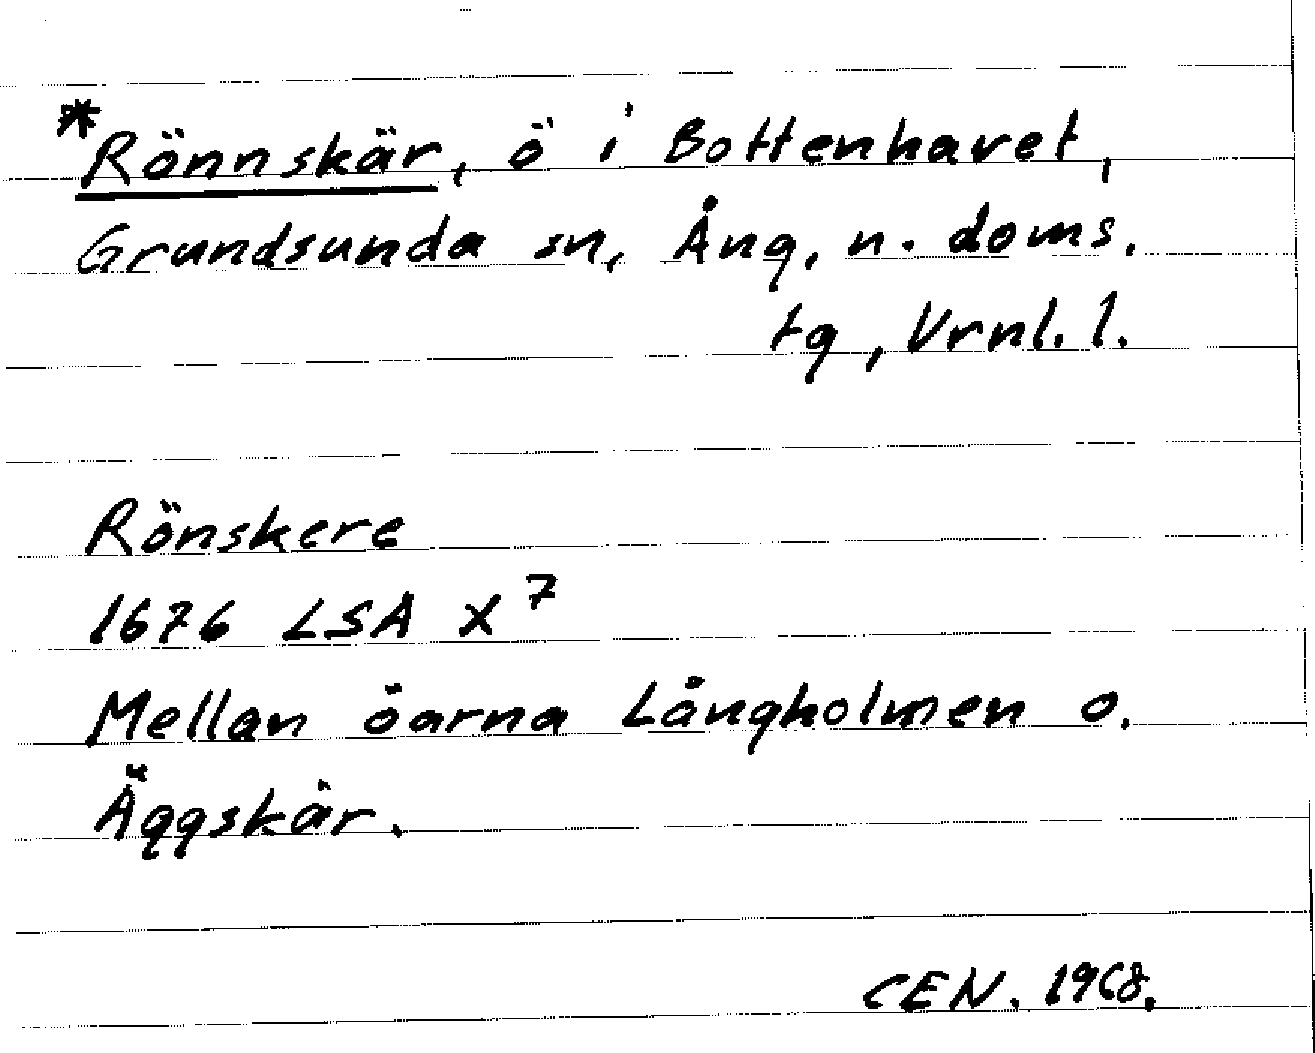 *Rönnskär, ö i Bottenhavet,
Grundsunda sn, Ång, n. doms.
tg, Vrnl. l.
Rönskere
1676 LSA X⁷
Mellan öarna Långholmen o.
Äggskär.
CEN. 1968.